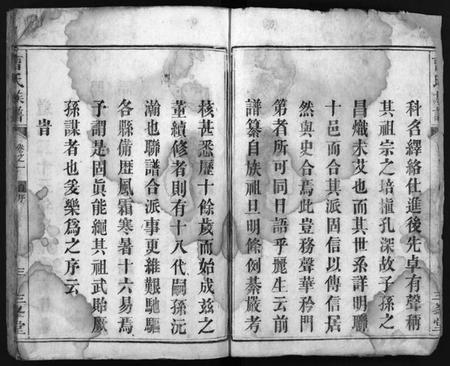 科名繹絡仕進後先卓有聲稱
其祖宗之培壅孔深故子孫之
昌熾未艾也而其世系詳明聯
十邑而合其派固信以傳信居
然與史合焉此豈務聲華矜門
第者所可同日語乎麗生云前
譜纂自族祖旦明條例綦嚴考
核甚悉歷十餘歲而始成兹之
董續修者則有十八代嗣孫沅
瀚也聯譜合派事更維艱馳驅
各縣備歷風霜寒暑十六易焉
予謂是固眞能繩其祖武貽厥
孫謀者也爰樂為之序云
旹
氏族譜
卷之一
序
三
三
堂